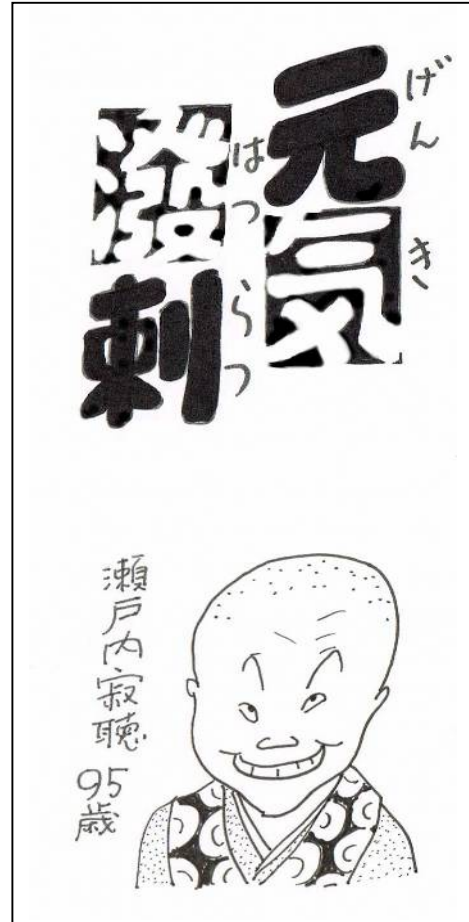 元気
げんき
潑刺
はつらつ
瀬戸内寂聴
95歳